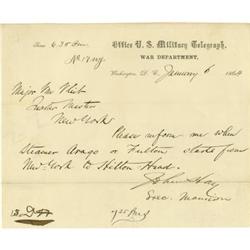 Time 6.30 Pm
Office U.S. Military Telegraph,
WAR DEPARTMENT,
Washington, D. C., January 6 1864
Major Van Vliet
Quarter Master
New York
Please inform me when
Steamer Arago or Fulton starts from
New York to Hilton Head.
John Hay
Exec. Mansion